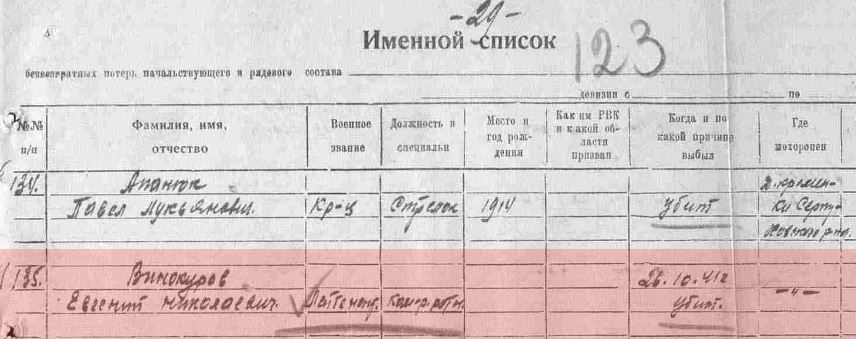 -29-
Именной список
123
безвозвратных потерь начальствующего и рядового состава
дивизии с по
№№ п/п Фамилия, имя, отчество Военное звание Должность и специальн Место и год рождения Каким РВК и какой области призван Когда и по какой причине выбыл Где
134. Апанюк
Павел Лукьянович. Кр-ц Стрелок 1914 убит
135. Винокуров 26.10.41г
Евгений Николаевич. Лейтенант. Коман. роты. убит. -"-